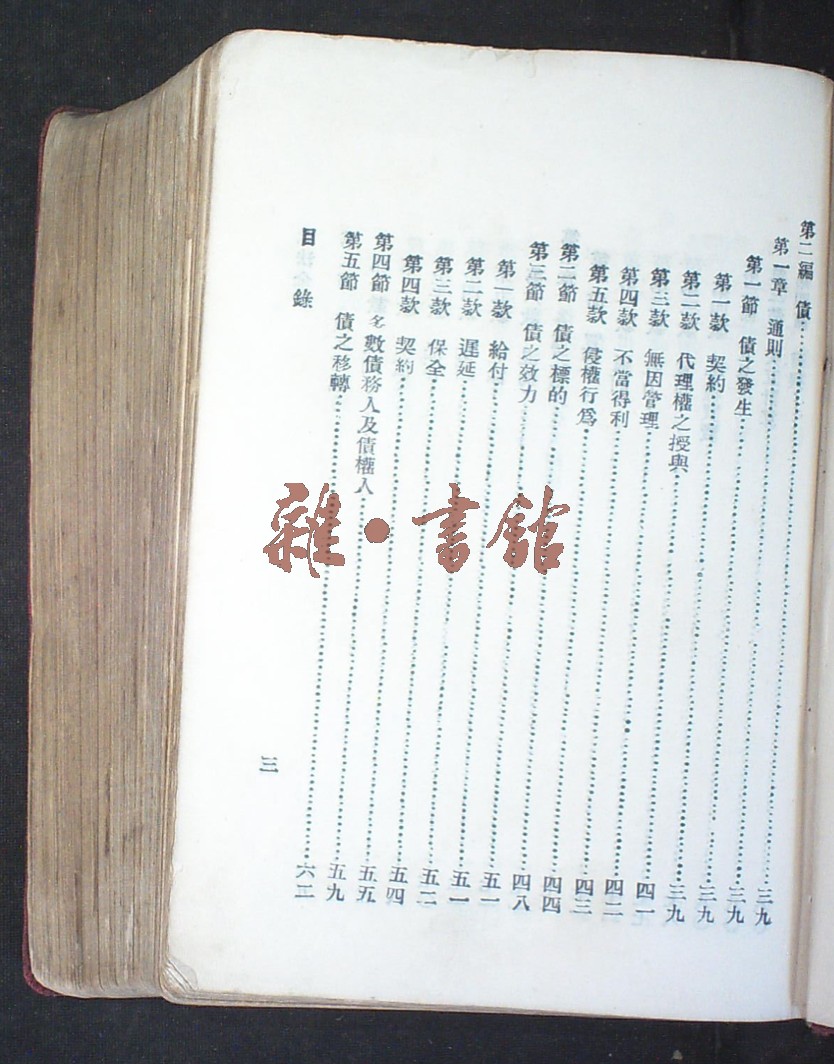 第二編 債……三九
第一章 通則……三九
第一節 債之發生……三九
第一款 契約……三九
第二款 代理權之授與……四一
第三款 無因管理……四二
第四款 不當得利……四三
第五款 侵權行爲……四四
第二節 債之標的……四八
第三節 債之效力……五一
第一款 給付……五一
第二款 遲延……五二
第三款 保全……五四
第四款 契約……五五
第四節 多數債務人及債權人……五九
第五節 債之移轉……六二
目錄
三
雜·書館